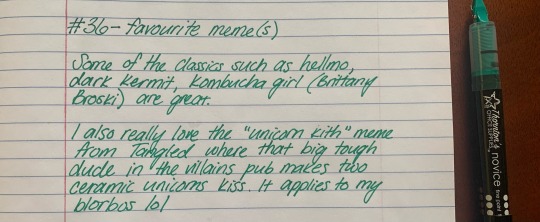 #36- favourite meme(s)
Some of the classics such as hellmo,
dark kermit, kombucha girl (Brittany
Broski) are great.
I also really love the "unicorn kith" meme
from Tangled where that big tough
dude in the villains pub makes two
ceramic unicorns kiss. It applies to my
blorbos lol
Thornton's
OFFICE SUPPLIES
novice
fine point